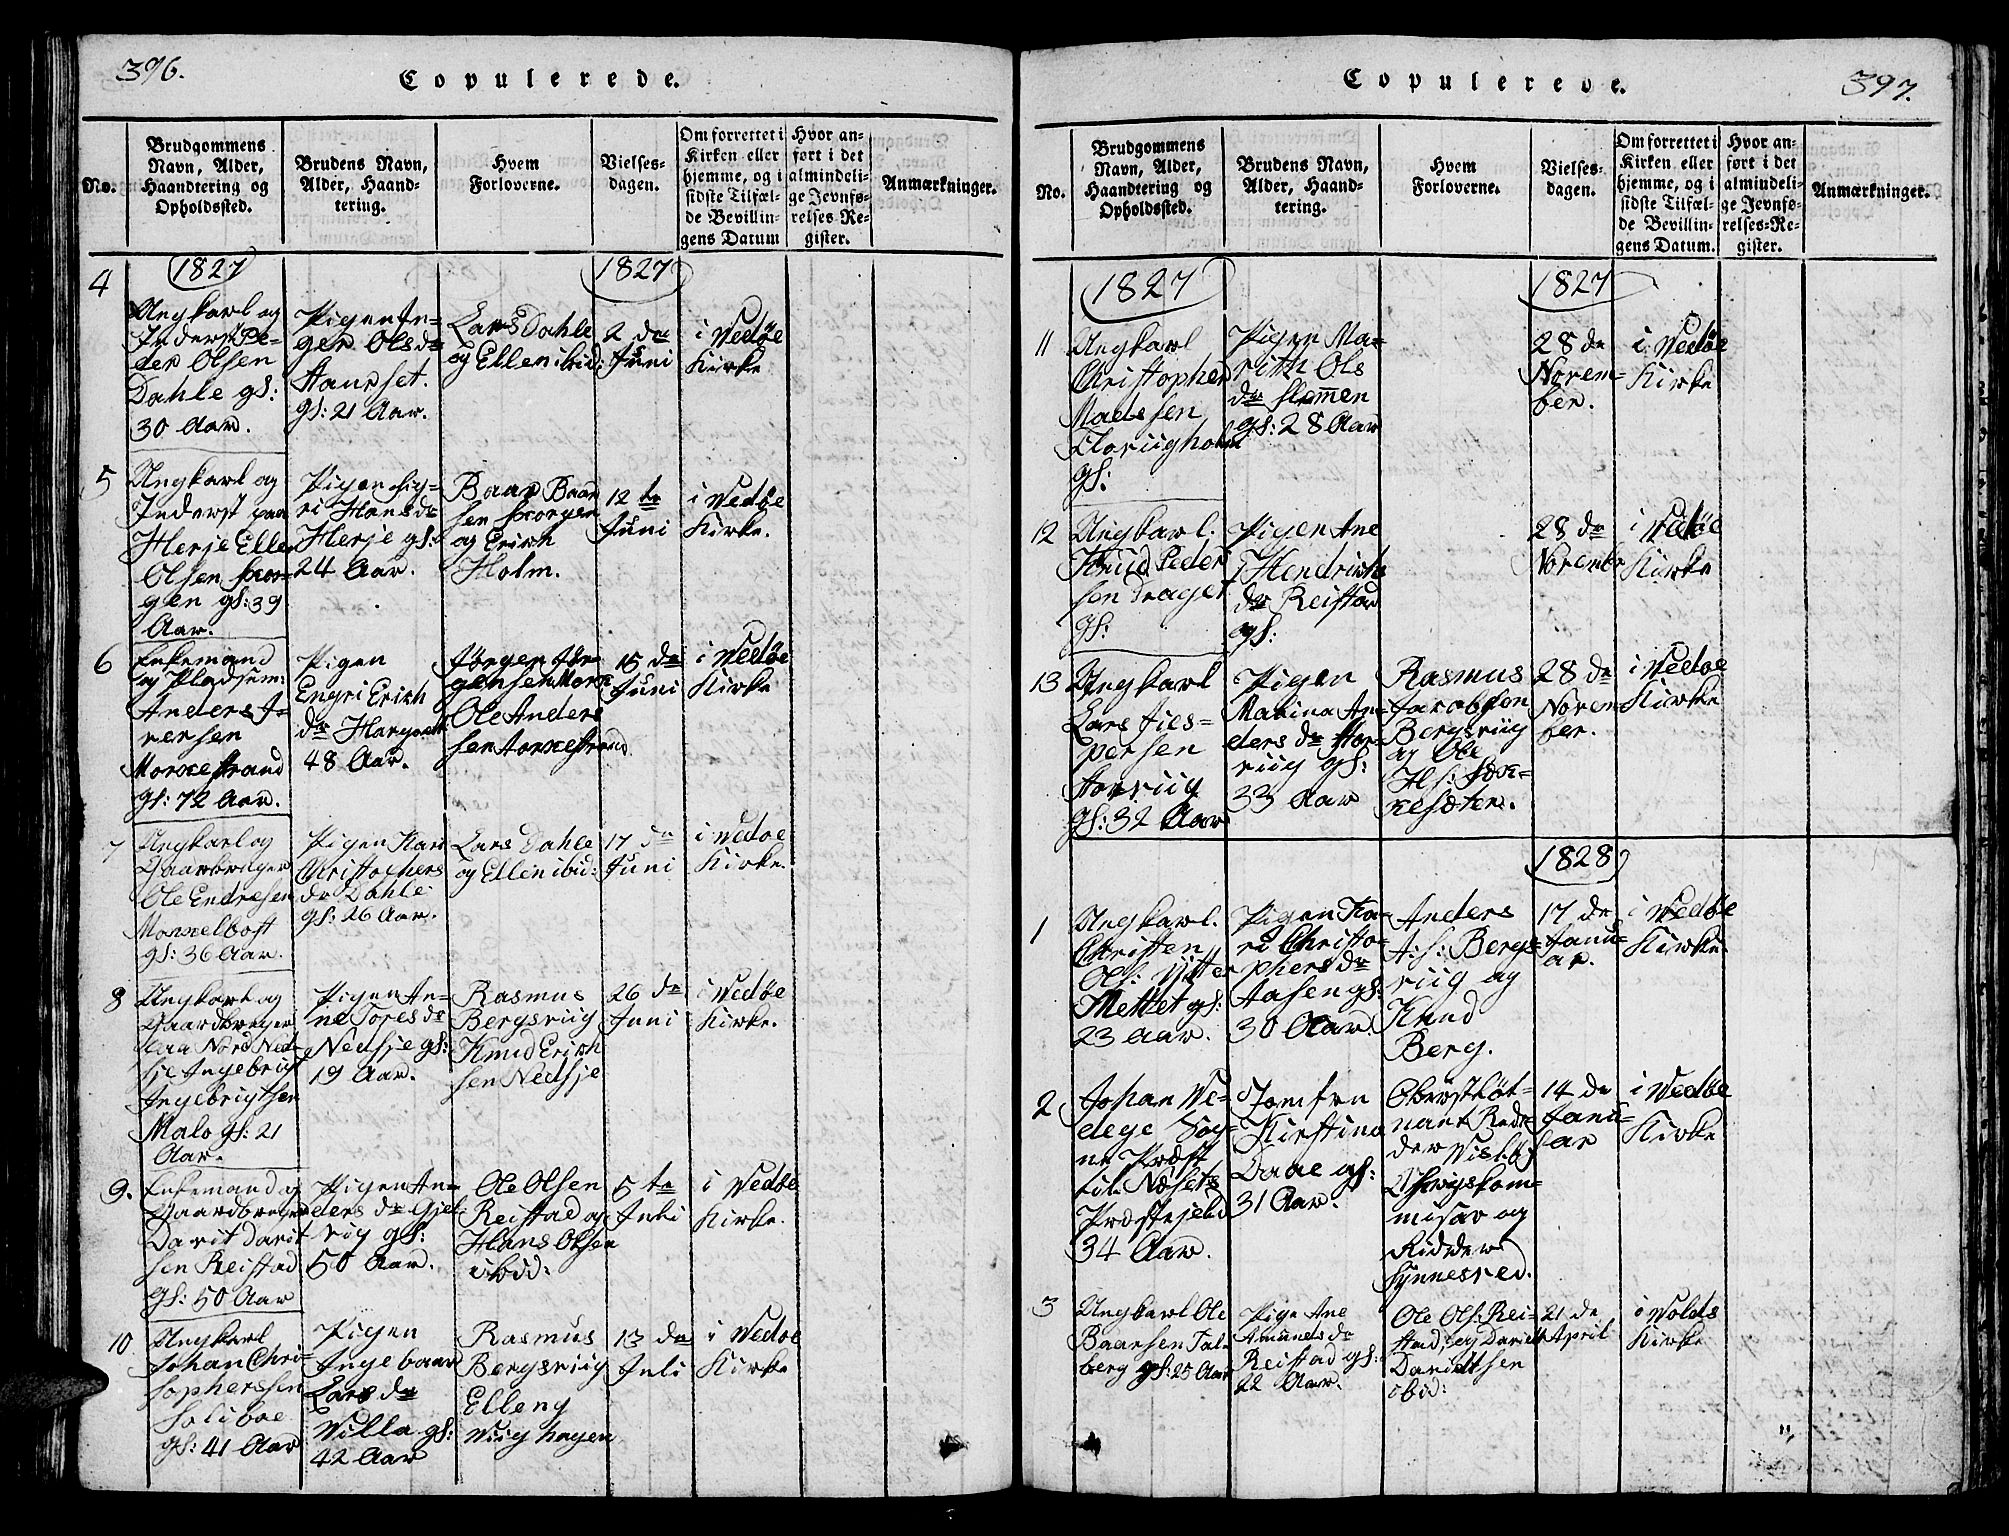 396.
Copulerede.
No.
Brudgommens
Navn, Alder,
Haandtering og
Opholdssted.
Brudens Navn,
Alder, Haand-
tering.
Hvem
Forloverne.
Vielses-
dagen.
Om forrettet i
Kirken eller
hjemme, og i
sidste Tilfæl-
de Bevillin-
gens Datum
Hvor an-
ført i det
almindeli-
ge Jevnfø-
relses-Re-
gister.
Anmærkninger.
1827
1827
4
Ungkarl og
Inderst Pe-
der Olsen
Dahle gl:
30 Aar.
Pigen In-
ger Olsdr
gl: 21 Aar.
Lars Dahle
og Ellen ibid:
2 de
Juni
i Wedøe
Kirke
5
Ungkarl og
Inderst paa
Herje Ellen
Olsen
gen gl: 39
Aar.
Pigen Sig-
ri Hansdr
Herje gl:
24 Aar.
Baar Baar
sen
og Erich
Holm.
12 te
Juni
i Wedøe
Kirke.
6
Enkemand
og Pladsem:
Anders I-
versen
gl: 72 Aar.
Pigen
Engri Erich
dr
48 Aar.
Jørgen Jør-
gensen
Ole Anders
sen
15 de
Juni
i Wedøe
Kirke
7
Ungkarl og
Gaardbruger
Ole Endresen
gl: 36 Aar.
Pigen Kari
Christophers
dr Dahle
gl: 26 Aar.
Lars Dahle
og Ellen ibid:
17 de
Juni
i Wedøe
Kirke.
8
Ungkarl og
Gaardbruger
paa Nord Ned-
sje Ingebrigt
Ingebrigtsen
Malo gl: 21
Aar.
Pigen An-
ne Tores dr
Nedsje gl:
19 Aar.
Rasmus
Bergsviig
Knud Erich
sen Nedsje
26 de
Juni
i Wedøe
Kirke.
9.
Enkemand og
Gaardbruger
Davit Davit
sen Reistad
gl: 50 Aar
Pigen An-
ders dr Gjel-
viig gl:
50 Aar.
Ole Olsen
Reistad og
Hans Olsen
ibid:
5 te
Juli
i Wedøe
Kirke.
10
Ungkarl
Johan Chri-
stophersen
Solibøe
gl: 41 Aar
Pigen
Ingebaar
Lars dr
Villa gl:
42 Aar
Rasmus
Bergsviig
Elleng
Wiig hagen
13 de
Juli
i Wedøe
Kirke
397.
Copulerede.
No.
Brudgommens
Navn, Alder,
Haandtering og
Opholdssted.
Brudens Navn,
Alder, Haand-
tering.
Hvem
Forloverne.
Vielses-
dagen.
Om forrettet i
Kirken eller
hjemme, og i
sidste Tilfæl-
de Bevillin-
gens Datum.
Hvor an-
ført i det
almindeli-
ge Jevnfø-
relses-Re-
gister.
Anmærkninger.
1827
1827
11
Ungkarl
Christopher
Madssen
gl:
Pigen Ma-
rith Ols
dr Slemen
gl: 28 Aar
28 de
Novem-
ber.
i Wedøe
Kirke
12
Ungkarl.
Knud Peder
sen Draget
gl:
Pigen Ane
Hendrichs
dr Reistad
gl:
28 de
Novembr
i Wedøe
Kirke
13
Ungkarl
Lars Jes-
persen
Horviig
gl: 32 Aar
Pigen
Marina An-
ders dr Hor-
viig gl:
33 Aar
Rasmus
Jacobsen
Bergsviig
og Ole
28 de
Novem
ber.
i Wedøe
Kirke
1828
1
Ungkarl.
Christen
Ols: Ytter
Mettet gl:
23 Aar.
Pigen Ka-
ri Christo-
phers dr
Aasen gl:
30 Aar.
Anders
A: s: Bergs-
viig og
Knud
Berg.
17 de
Janu-
ar.
i Wedøe
Kirke.
2
Johan We-
dege Sog-
ne Præst
til Næsets
Præstejeld
34 Aar.
Jomfru
Kirstina
Daae gl:
31 Aar.
Obristløt-
nant Rid-
der Wisløf
Krigskom-
misar og
Ridder
Synnestved.
14 de
Janu-
ar
i Wedøe
Kirke
3
Ungkarl Ole
Baarsen Tal-
berg gl: 25 Aar
Pige Ane
Amunds dr
Reistad gl:
22 Aar.
Ole Ols: Rei-
stad, og David
Davidtsen
ibid:
21 de
April
i Wolds
Kirke